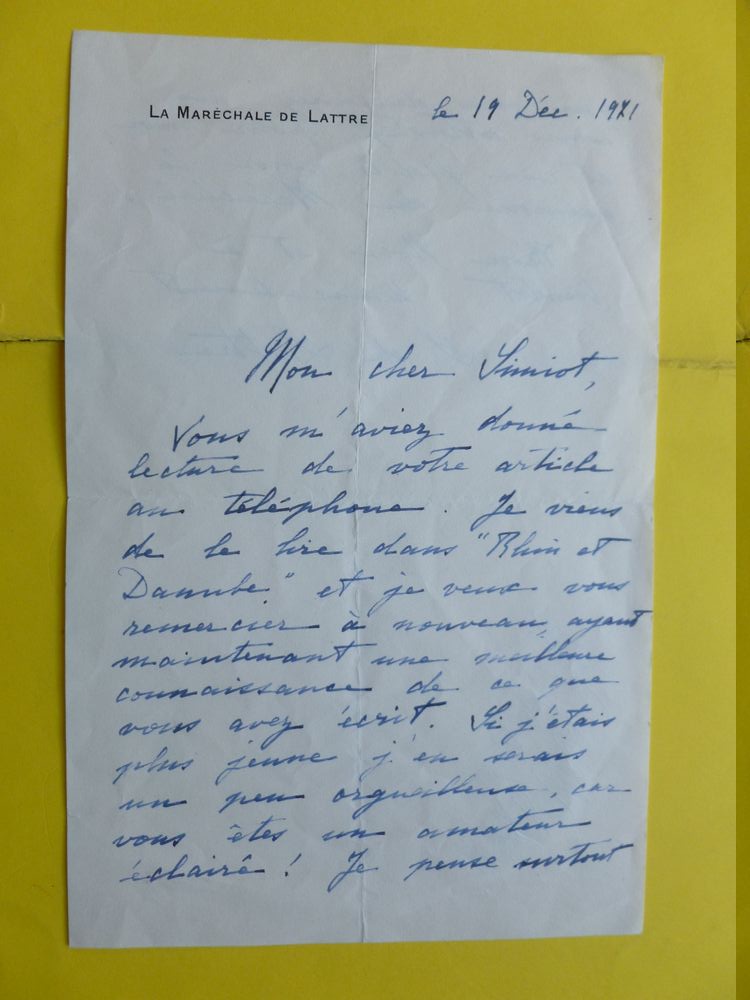 LA MARÉCHALE DE LATTRE
le 19 Déc. 1971
Mon cher Simiot,
Vous m'aviez donné
lecture de votre article
au téléphone. Je viens
de le lire dans "Rhin et
Danube" et je veux vous
remercier à nouveau, ayant
maintenant une meilleure
connaissance de ce que
vous avez écrit. Si j'étais
plus jeune j'en serais
un peu orgueilleuse, car
vous êtes un amateur
éclairé ! Je pense surtout